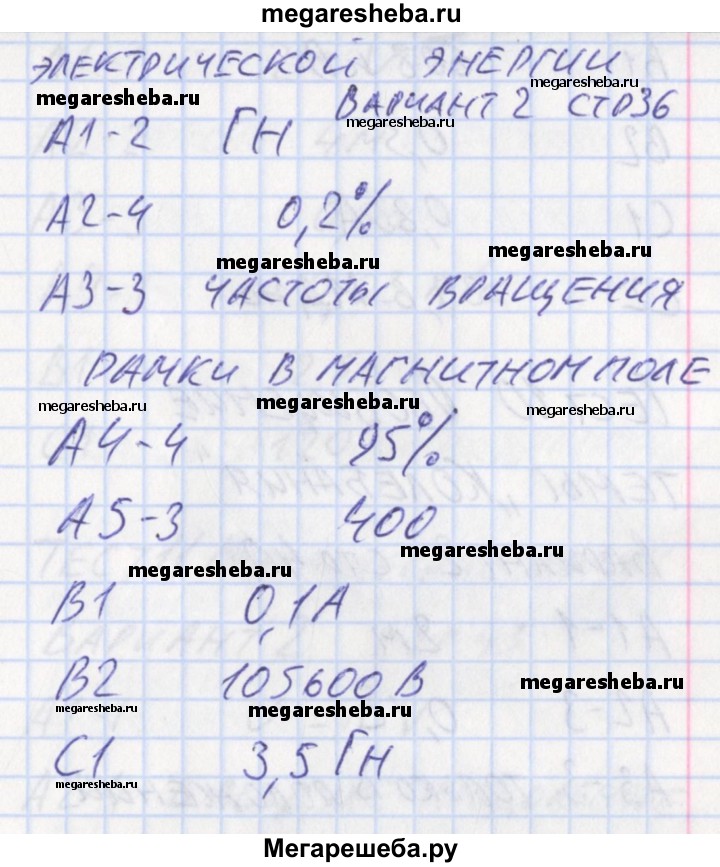 megaresheba.ru
ЭЛЕКТРИЧЕСКОЙ ЭНЕРГИИ
megaresheba.ru
megaresheba.ru
ВАРИАНТ 2 СТР36
megaresheba.ru
А1-2 ГН
А2-4 0,2%
megaresheba.ru
megaresheba.ru
А3-3 ЧАСТОТЫ ВРАЩЕНИЯ
РАМКИ В МАГНИТНОМ ПОЛЕ
megaresheba.ru
megaresheba.ru
megaresheba.ru
А4-4 95%
А5-3 400
megaresheba.ru
megaresheba.ru
В1 0,1А
В2 105600 В
megaresheba.ru
megaresheba.ru
megaresheba.ru
С1 3,5 ГН
megaresheba.ru
Мегарешеба.ру